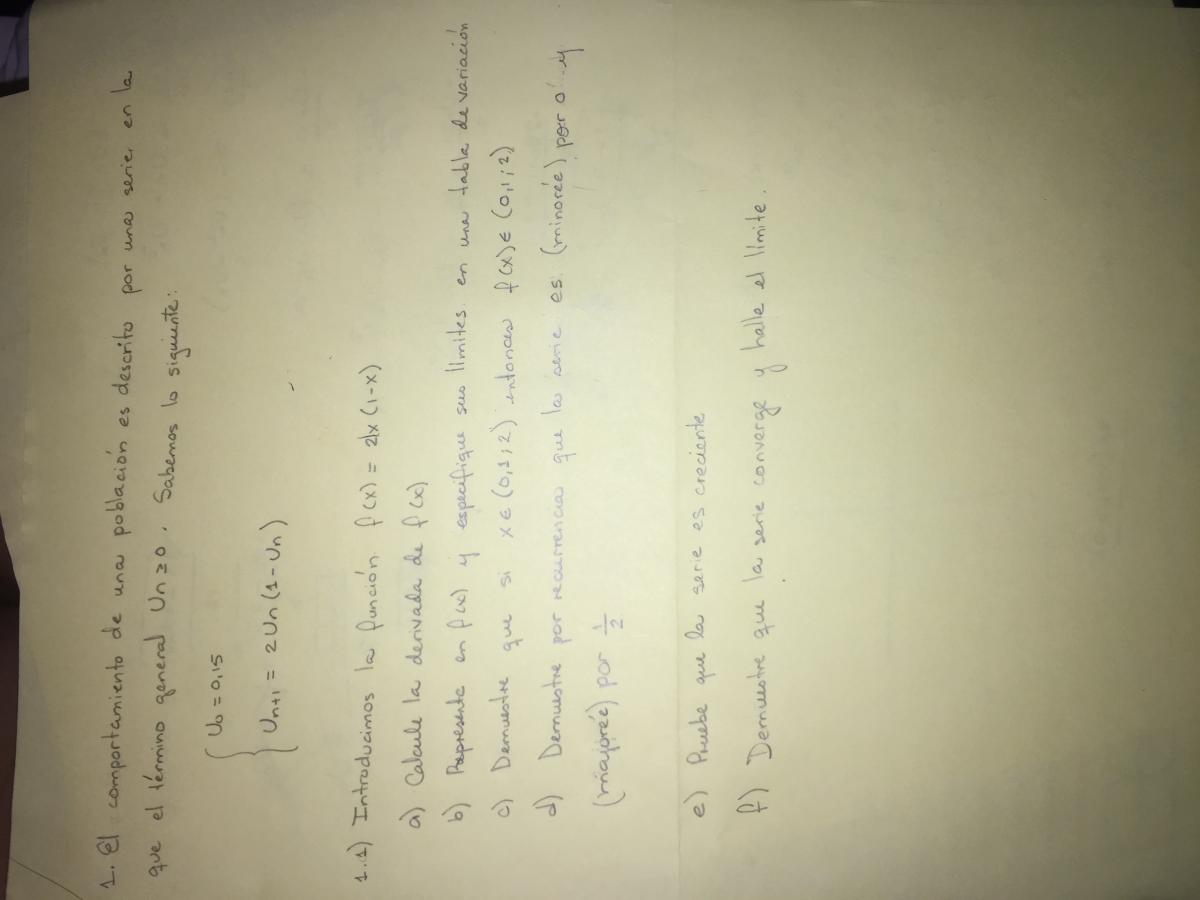 1. El comportamiento de una población es descrito por una serie, en la
que el término general Un ≥ 0. Sabemos lo siguiente:
U0 = 0,15
Un+1 = 2Un (1 - Un)
1.1) Introducimos la función f(x) = 2x (1-x)
a) Calcule la derivada de f(x)
b) Represente en f(x) y especifique sus límites en una tabla de variación
c) Demuestre que si x ∈ (0,1;2) entonces f(x) ∈ (0,1;2)
d) Demuestre por recurrencia que la serie es (minorée) por 0 y
(majorée) por 1/2
e) Pruebe que la serie es creciente
f) Demuestre que la serie converge y halle el límite.